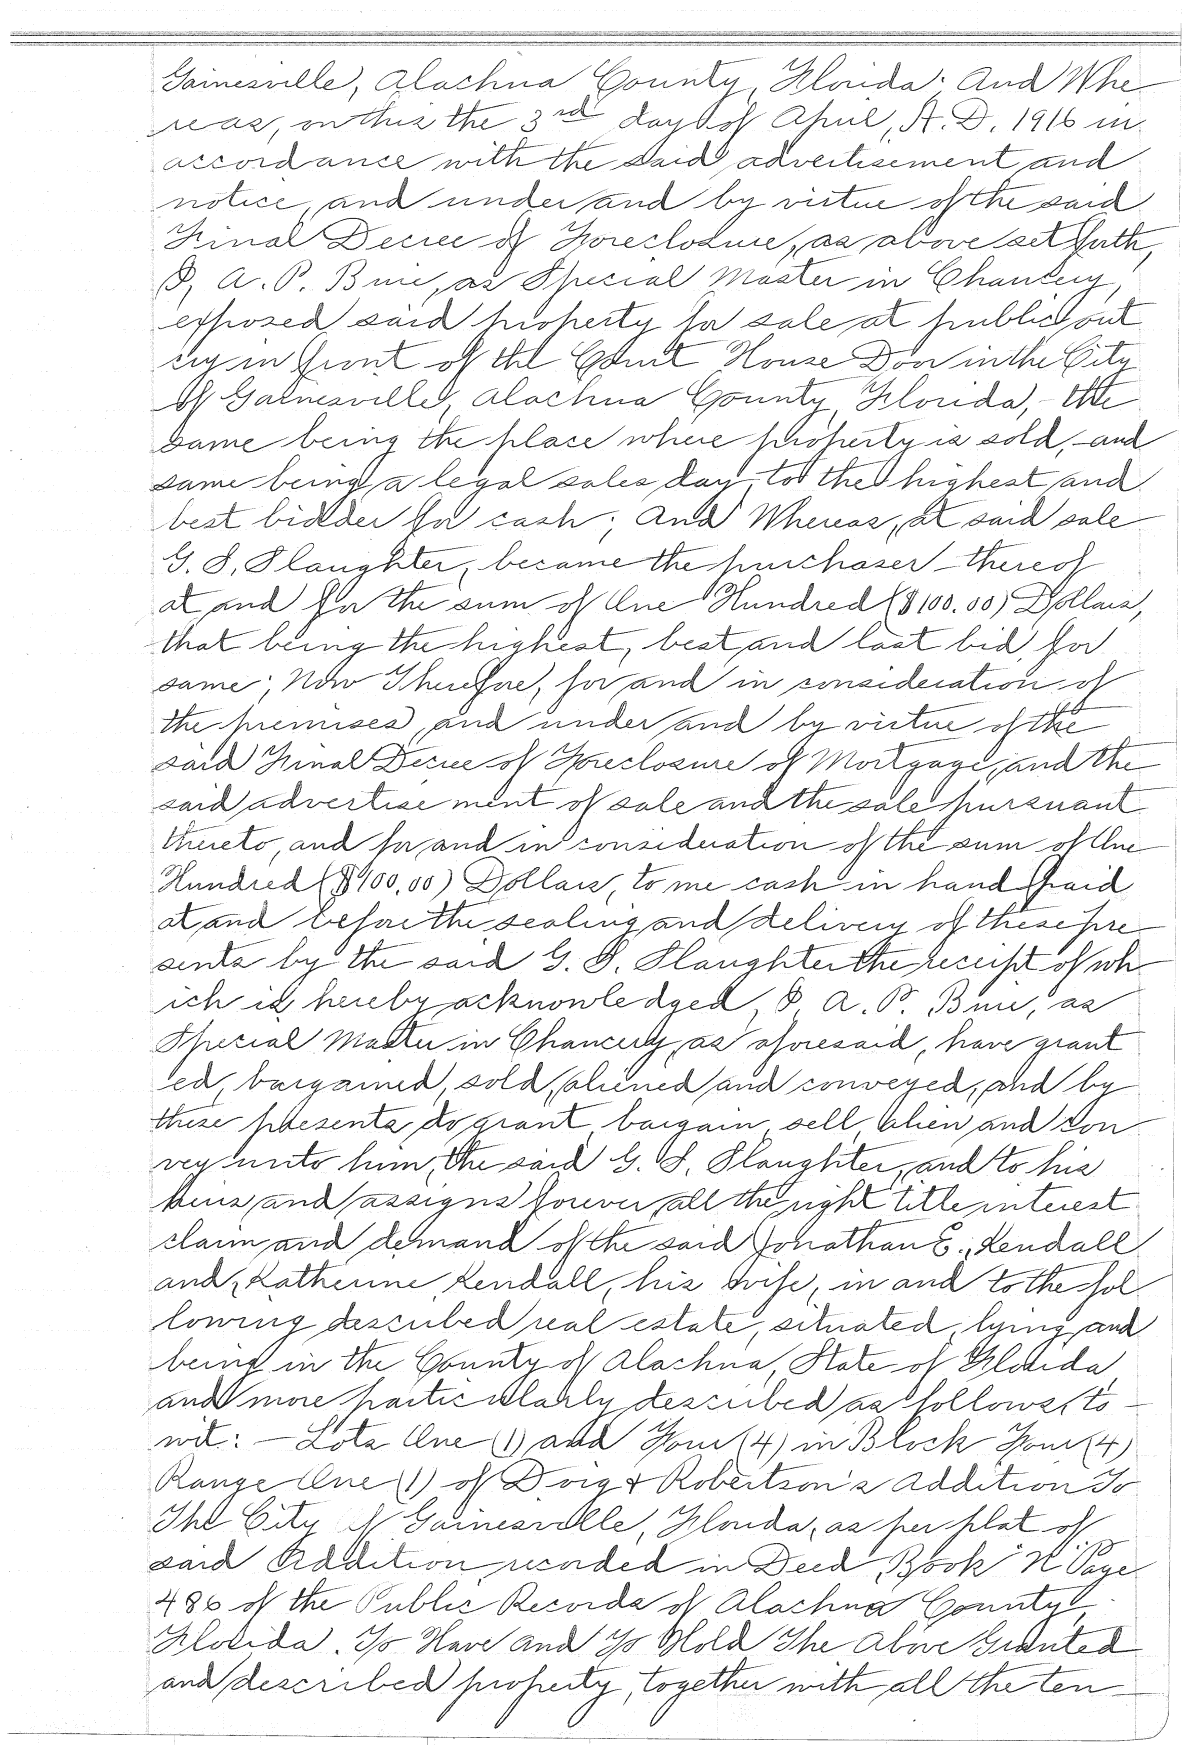 Gainesville, Alachua County, Florida; And Whe
reas, on this the 3rd day of April, A. D. 1916 in
accordance with the said advertisement and
notice, and under and by virtue of the said
Final Decree of Foreclosure, as above set forth,
I, A. P. Buie, as Special Master in Chancery,
exposed said property for sale at public out
cry in front of the Court House Door in the City
of Gainesville, Alachua County, Florida, - the
same being the place where property is sold, - and
same being a legal sales day, to the highest and
best bidder for cash; And Whereas, at said sale
G. S. Slaughter, became the purchaser - thereof
at and for the sum of One Hundred ($100.00) Dollars,
that being the highest, best and last bid for
same; Now Therefore, for and in consideration of
the premises, and under and by virtue of the
said Final Decree of Foreclosure of Mortgage, and the
said advertise ment of sale and the sale pursuant
thereto, and for and in consideration of the sum of One
Hundred ($100.00) Dollars, to me cash in hand paid
at and before the sealing and delivery of these pre
sents by the said G. S. Slaughter the receipt of wh
ich is hereby acknowledged, I, A. P. Buie, as
Special Master in Chancery, as aforesaid, have grant
ed, bargained, sold, aliened and conveyed, and by
these presents do grant, bargain, sell, alien and con
vey unto him, the said G. S. Slaughter, and to his
heirs and assigns forever, all the right title interest
claim and demand of the said Jonathan E. Kendall
and Katherine Kendall, his wife, in and to the fol
lowing described real estate, situated, lying and
being in the County of Alachua, State of Florida,
and more particularly described as follows, to -
wit: - Lots One (1) and Four (4) in Block Four (4)
Range One (1) of Doig & Robertson's Addition To
The City of Gainesville, Florida, as per plat of
said Addition recorded in Deed Book "N" Page
486 of the Public Records of Alachua County,
Florida. To Have and To Hold The Above Granted
and described property, together with all the ten-